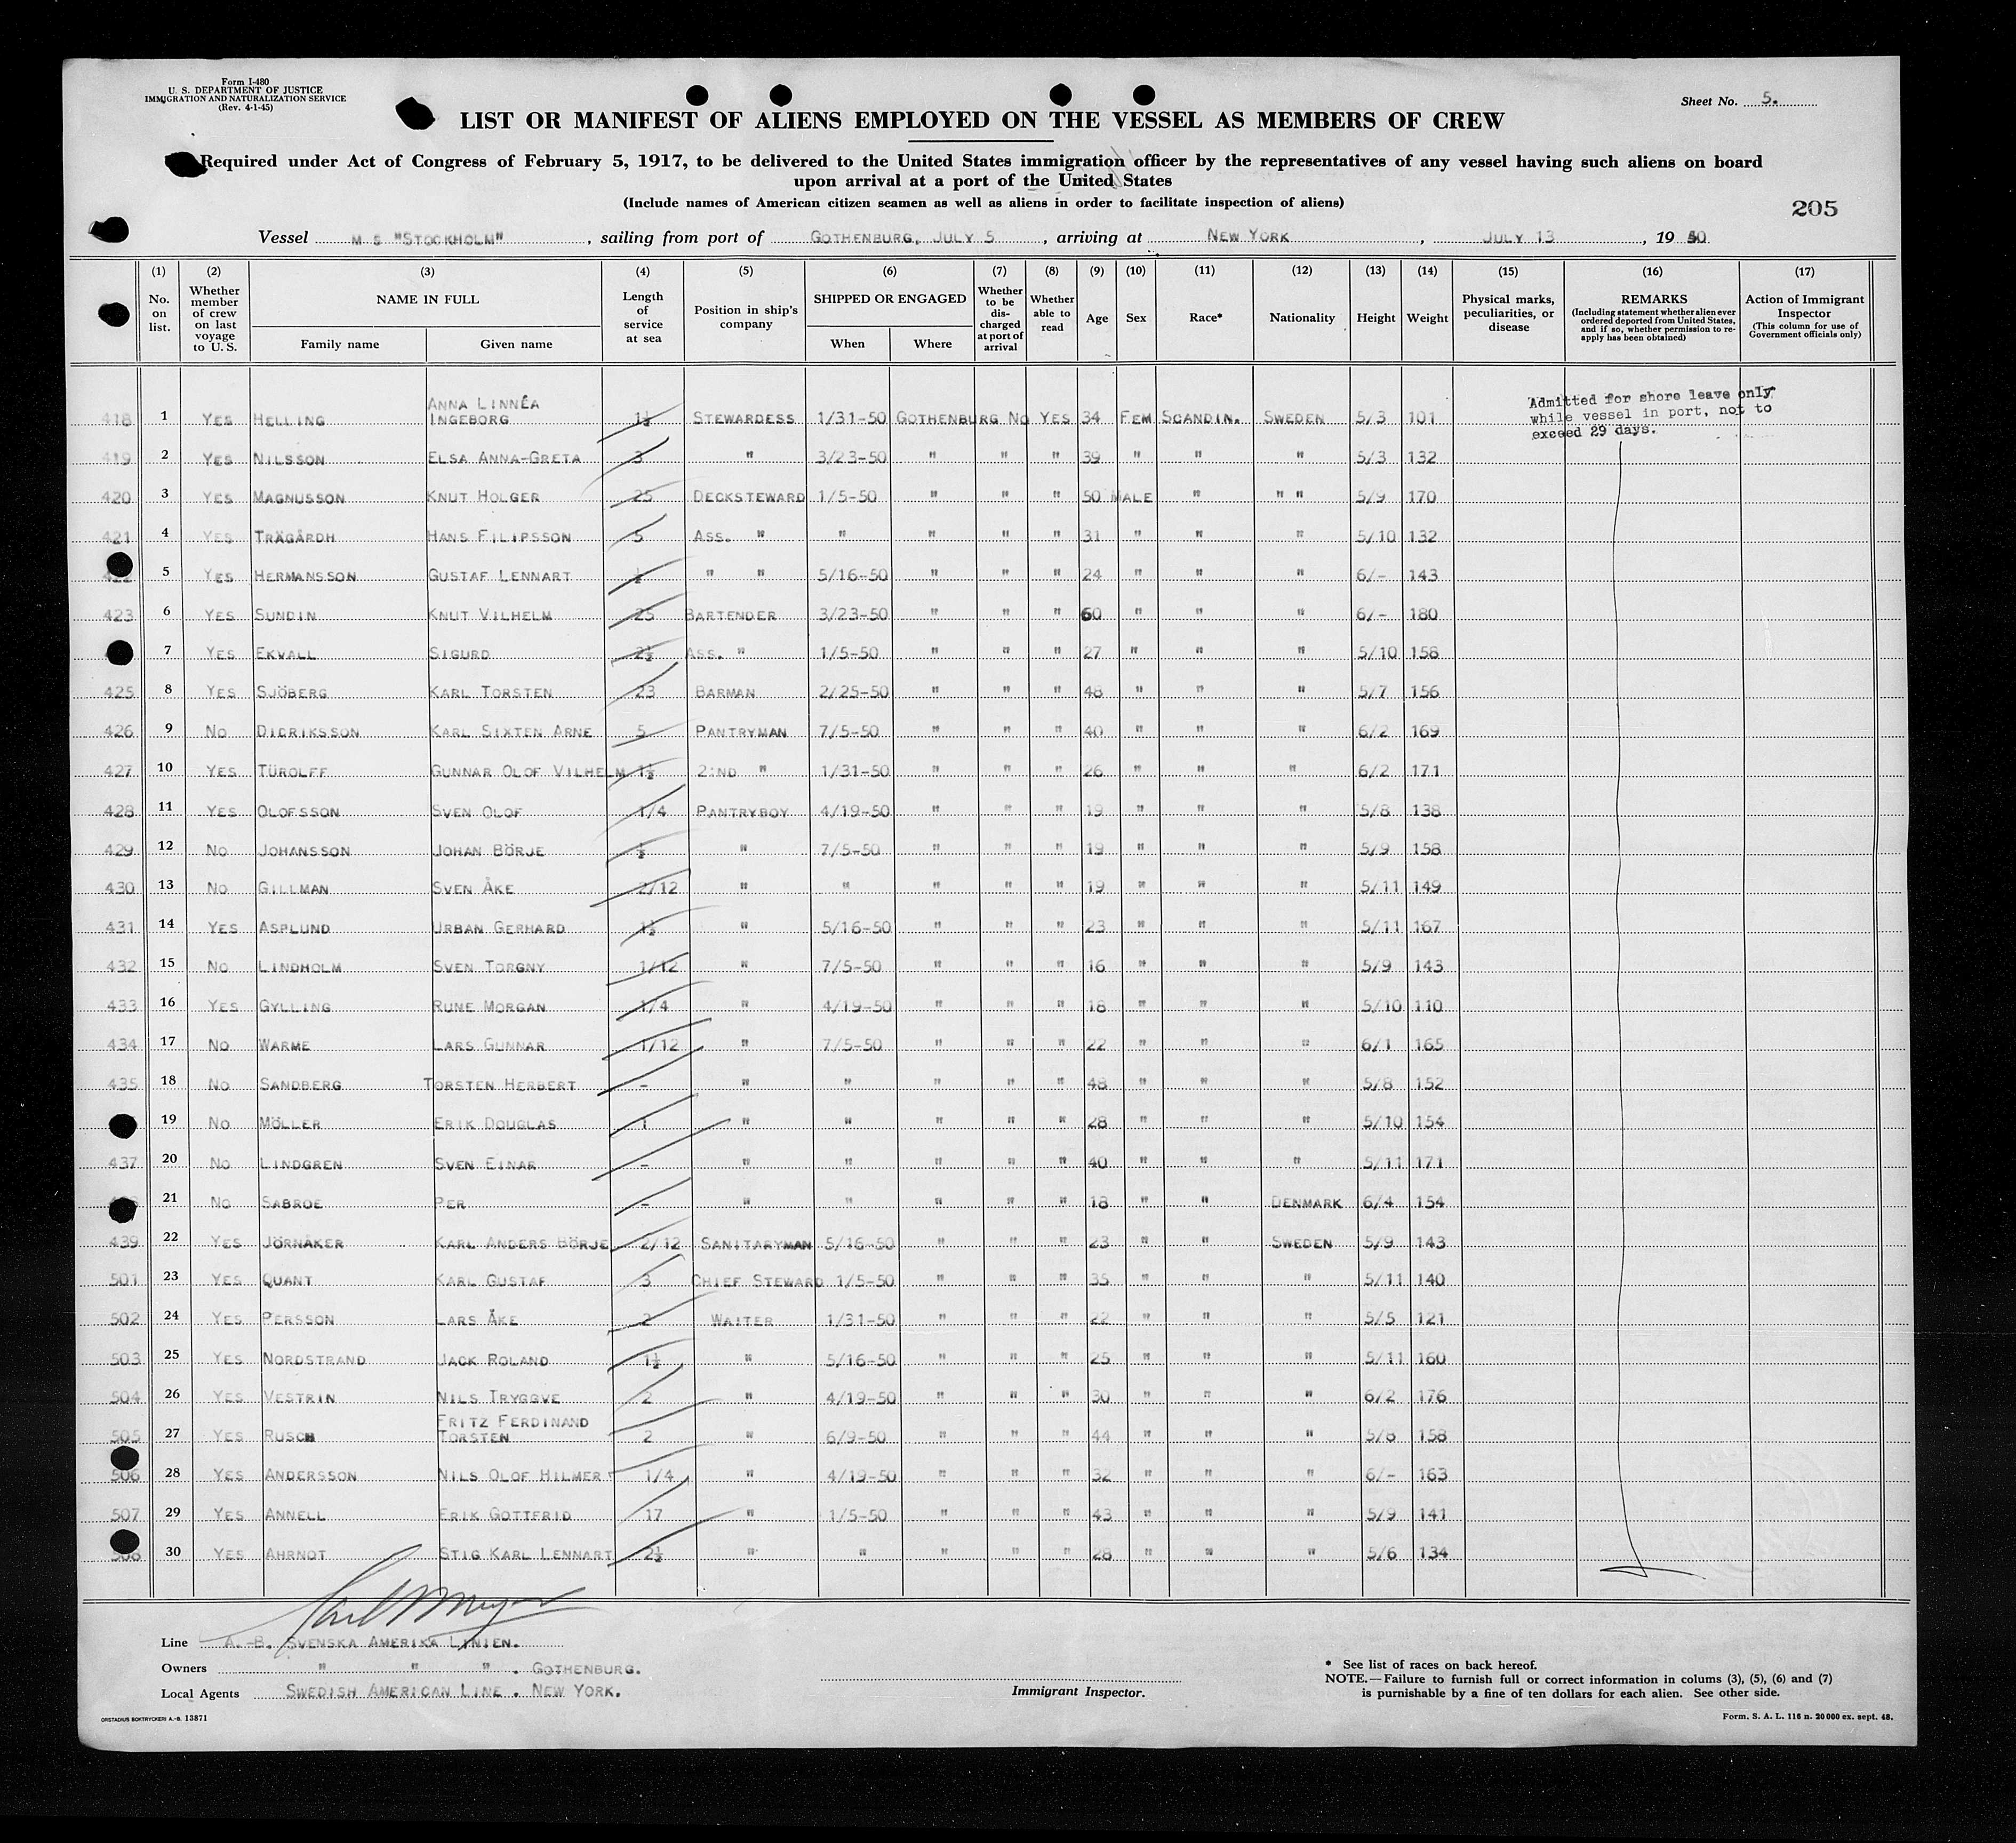 Form I-480
U. S. DEPARTMENT OF JUSTICE
IMMIGRATION AND NATURALIZATION SERVICE
(Rev. 4-1-45)
Sheet No. 5.
LIST OR MANIFEST OF ALIENS EMPLOYED ON THE VESSEL AS MEMBERS OF CREW
Required under Act of Congress of February 5, 1917, to be delivered to the United States immigration officer by the representatives of any vessel having such aliens on board
upon arrival at a port of the United States
(Include names of American citizen seamen as well as aliens in order to facilitate inspection of aliens)
205
Vessel M S "STOCKHOLM", sailing from port of GOTHENBURG, JULY 5, arriving at NEW YORK, JULY 13, 19 50
(1) (2) (3) (4) (5) (6) (7) (8) (9) (10) (11) (12) (13) (14) (15) (16) (17)
No. on list.
Whether member of crew on last voyage to U. S.
NAME IN FULL
Family name Given name
Length of service at sea
Position in ship's company
SHIPPED OR ENGAGED
When Where
Whether to be discharged at port of arrival
Whether able to read
Age Sex Race* Nationality Height Weight
Physical marks, peculiarities, or disease
REMARKS
(Including statement whether alien ever ordered deported from United States, and if so, whether permission to re-apply has been obtained)
Action of Immigrant Inspector
(This column for use of Government officials only)
Admitted for shore leave only
while vessel in port, not to
exceed 29 days.
418 1 YES HELLING ANNA LINNÉA INGEBORG 1½ STEWARDESS 1/31-50 GOTHENBURG NO YES 34 FEM SCANDIN. SWEDEN 5/3 101
419 2 YES NILSSON ELSA ANNA-GRETA 3 " 3/23-50 " " " 39 " " " 5/3 132
420 3 YES MAGNUSSON KNUT HOLGER 25 DECKSTEWARD 1/5-50 " " " 50 MALE " " " 5/9 170
421 4 YES TRÄGÅRDH HANS FILIPSSON 5 ASS. " " " " " 31 " " " 5/10 132
5 YES HERMANSSON GUSTAF LENNART ½ " " 5/16-50 " " " 24 " " " 6/- 143
423 6 YES SUNDIN KNUT VILHELM 25 BARTENDER 3/23-50 " " " 60 " " " 6/- 180
7 YES EKVALL SIGURD 2½ ASS. " 1/5-50 " " " 27 " " " 5/10 158
425 8 YES SJÖBERG KARL TORSTEN 23 BARMAN 2/25-50 " " " 48 " " " 5/7 156
426 9 NO DIDRIKSSON KARL SIXTEN ARNE 5 PANTRYMAN 7/5-50 " " " 40 " " " 6/2 169
427 10 YES TÜROLFF GUNNAR OLOF VILHELM 1½ 2:ND " 1/31-50 " " " 26 " " " 6/2 171
428 11 YES OLOFSSON SVEN OLOF 1/4 PANTRYBOY 4/19-50 " " " 19 " " " 5/8 138
429 12 NO JOHANSSON JOHAN BÖRJE ½ " 7/5-50 " " " 19 " " " 5/9 158
430 13 NO GILLMAN SVEN ÅKE 2/12 " " " " " 19 " " " 5/11 149
431 14 YES ASPLUND URBAN GERHARD 1½ " 5/16-50 " " " 23 " " " 5/11 167
432 15 NO LINDHOLM SVEN TORGNY 1/12 " 7/5-50 " " " 16 " " " 5/9 143
433 16 YES GYLLING RUNE MORGAN 1/4 " 4/19-50 " " " 18 " " " 5/10 110
434 17 NO WARME LARS GUNNAR 1/12 " 7/5-50 " " " 22 " " " 6/1 165
435 18 NO SANDBERG TORSTEN HERBERT - " " " " " 48 " " " 5/8 152
19 NO MÖLLER ERIK DOUGLAS 1 " " " " " 28 " " " 5/10 154
437 20 NO LINDGREN SVEN EINAR - " " " " " 40 " " " 5/11 171
21 NO SABROE PER - " " " " " 18 " " DENMARK 6/4 154
439 22 YES JÖRNÅKER KARL ANDERS BÖRJE 2/12 SANITARYMAN 5/16-50 " " " 23 " " SWEDEN 5/9 143
501 23 YES QUANT KARL GUSTAF 3 CHIEF STEWARD 1/5-50 " " " 35 " " " 5/11 140
502 24 YES PERSSON LARS ÅKE 2 WAITER 1/31-50 " " " 22 " " " 5/5 121
503 25 YES NORDSTRAND JACK ROLAND 1½ " 5/16-50 " " " 25 " " " 5/11 160
504 26 YES VESTRIN NILS TRYGGVE 2 " 4/19-50 " " " 30 " " " 6/2 176
505 27 YES RUSCH FRITZ FERDINAND TORSTEN 2 " 6/9-50 " " " 44 " " " 5/8 158
506 28 YES ANDERSSON NILS OLOF HILMER 1/4 " 4/19-50 " " " 32 " " " 6/- 163
507 29 YES ANNELL ERIK GOTTFRID 17 " 1/5-50 " " " 43 " " " 5/9 141
508 30 YES AHRNOT STIG KARL LENNART 2½ " " " " " 28 " " " 5/6 134
Line A.-B. SVENSKA AMERIKA LINIEN.
Owners " " " . GOTHENBURG.
Local Agents SWEDISH AMERICAN LINE . NEW YORK.
Immigrant Inspector.
* See list of races on back hereof.
NOTE.—Failure to furnish full or correct information in colums (3), (5), (6) and (7)
is punishable by a fine of ten dollars for each alien. See other side.
ORSTADIUS BOKTRYCKERI A.-B. 13871
Form. S. A. L. 116 n. 20 000 ex. sept. 48.